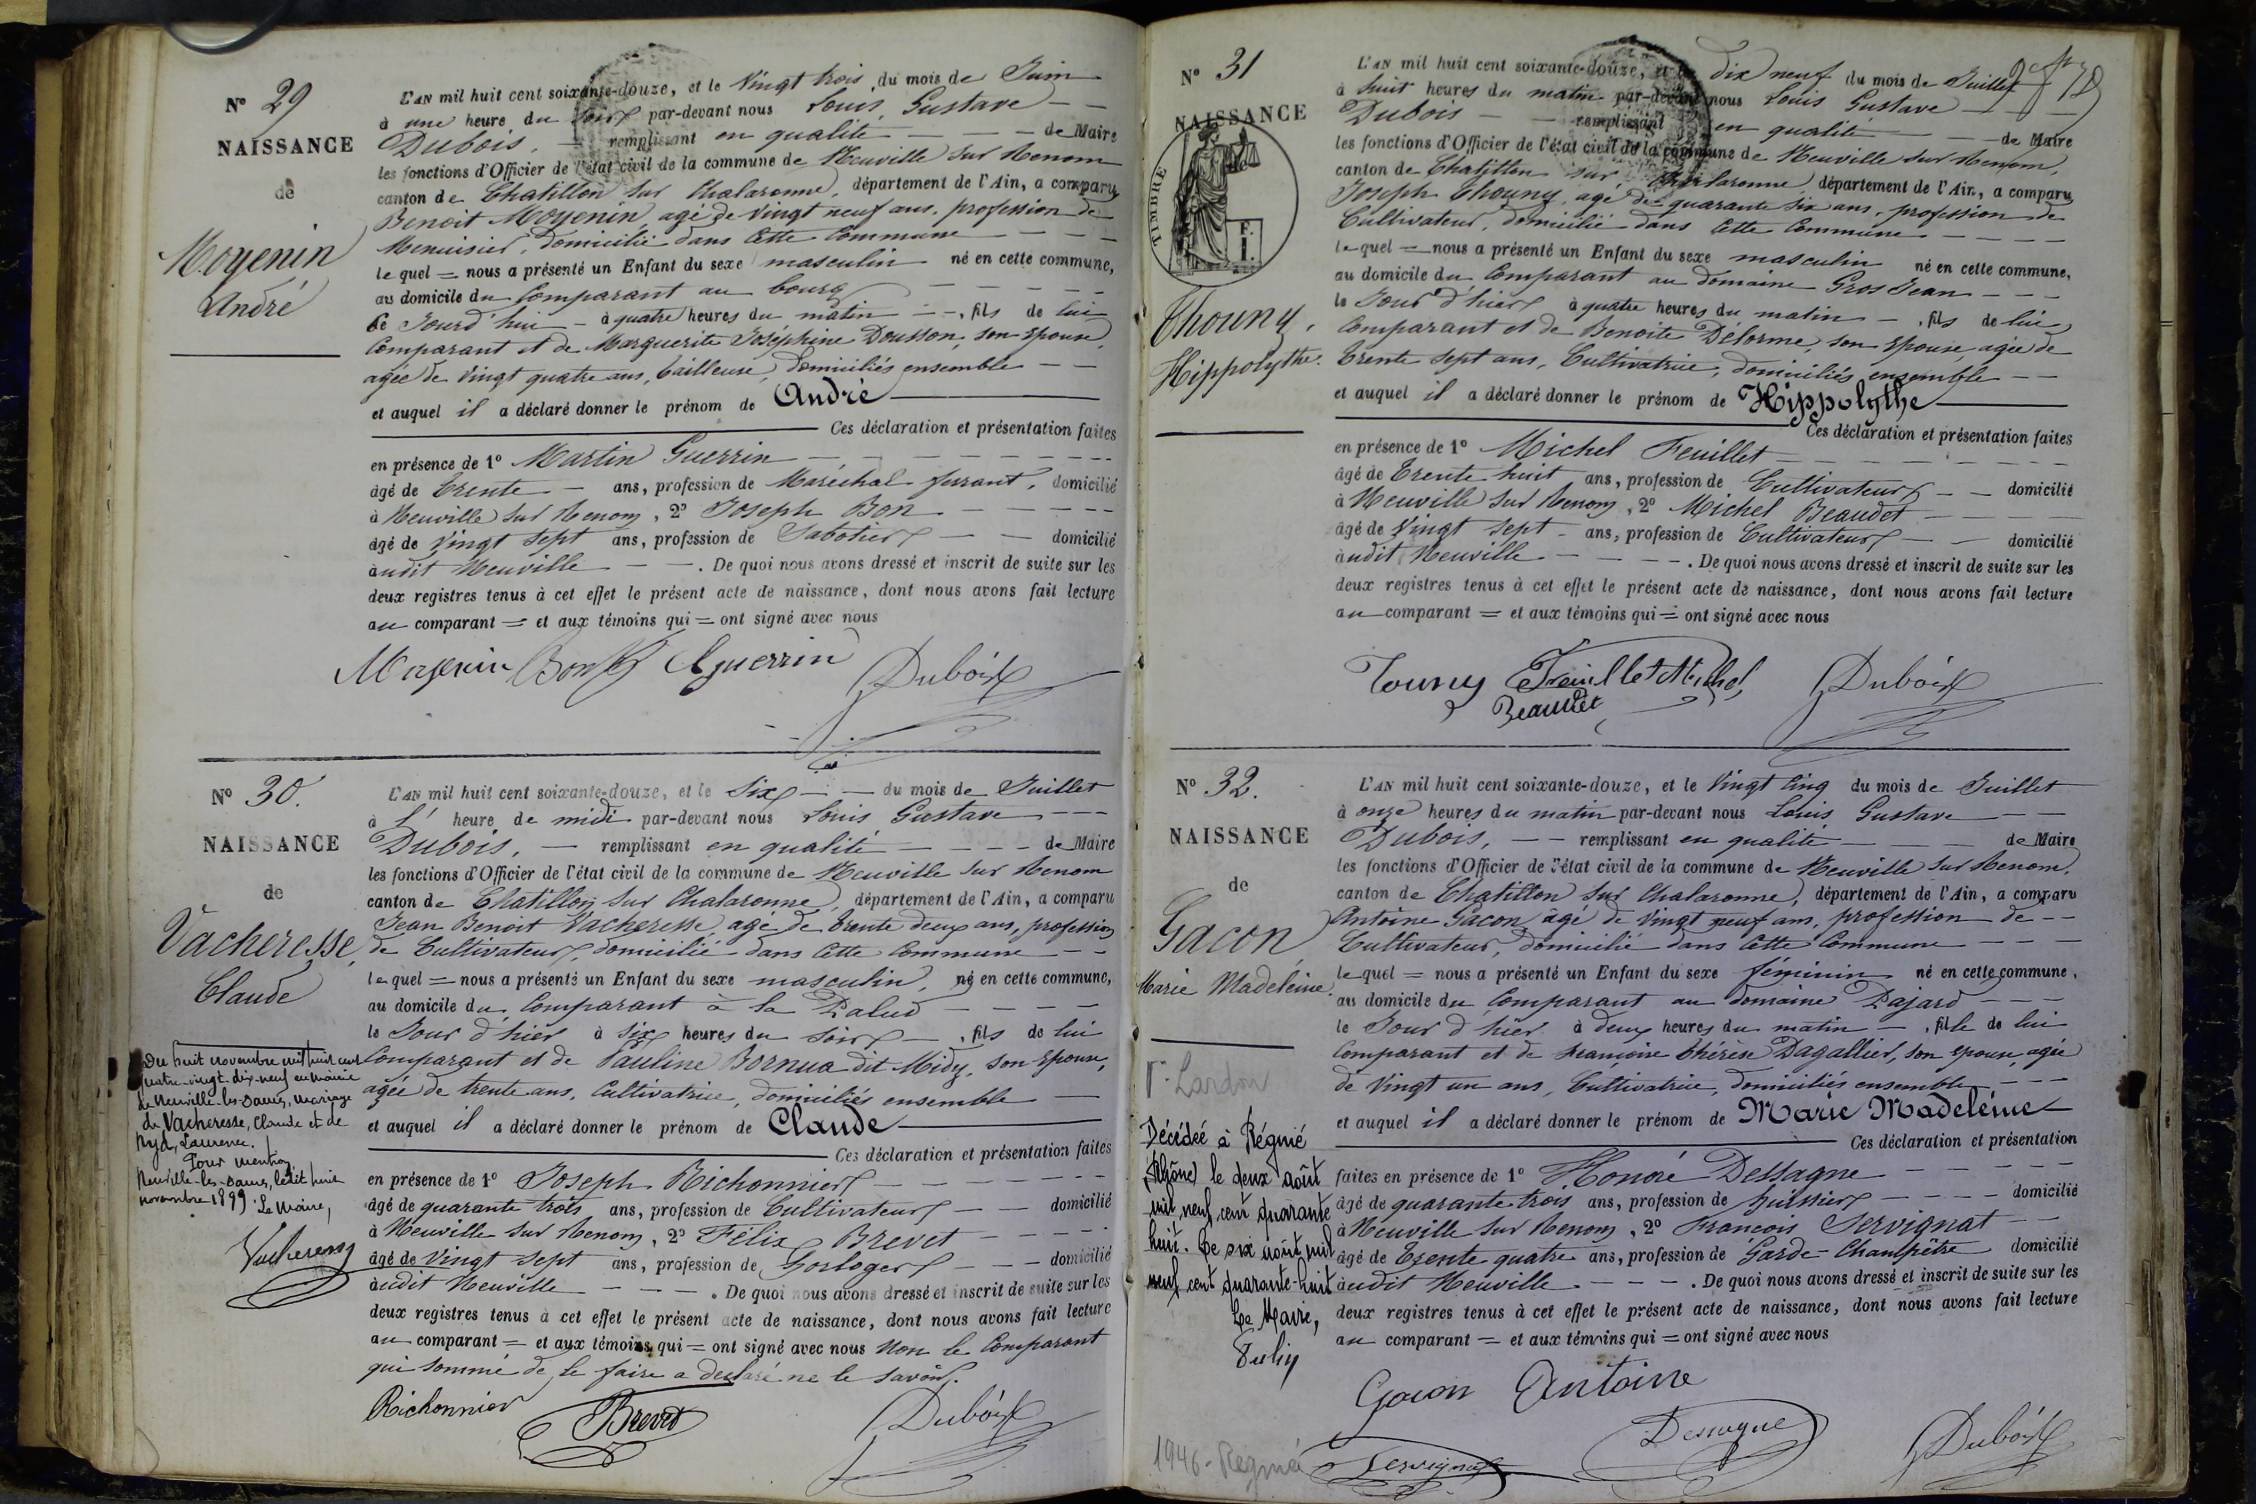 N° 29
NAISSANCE
de
Moyenin
André
L'AN mil huit cent soixante-douze, et le Vingt trois, du mois de Juin
à une heure du soir par-devant nous Louis Gustave
Dubois, remplissant en qualité de Maire
les fonctions d'Officier de l'état civil de la commune de Neuville sur Renom
canton de Chatillon sur Chalaronne, département de l'Ain, a comparu
Benoit Moyenin agé de vingt neuf ans, profession de
Menuisier, domicilié dans cette Commune
lequel = nous a présenté un Enfant du sexe masculin né en cette commune,
au domicile du Comparant au bourg
ce Jourd'hui à quatre heures du matin, fils de lui
Comparant et de Marguerite Joséphine Dousson, son épouse,
agée de vingt quatre ans, tailleuse, domiciliés ensemble
et auquel il a déclaré donner le prénom de André
Ces déclaration et présentation faites
en présence de 1° Martin Guerrin
âgé de trente ans, profession de Maréchal ferrant, domicilié
à Neuville sur Renom, 2° Joseph Bon
âgé de vingt sept ans, profession de Sabotier domicilié
audit Neuville. De quoi nous avons dressé et inscrit de suite sur les
deux registres tenus à cet effet le présent acte de naissance, dont nous avons fait lecture
au comparant = et aux témoins qui = ont signé avec nous
Moyenin Bon Guerrin Dubois
N° 30.
NAISSANCE
de
Vacheresse,
Claude
L'AN mil huit cent soixante-douze, et le six du mois de Juillet
à l' heure de midi par-devant nous Louis Gustave
Dubois, remplissant en qualité de Maire
les fonctions d'Officier de l'état civil de la commune de Neuville sur Renom
canton de Chatillon sur Chalaronne, département de l'Ain, a comparu
Jean Benoit Vacheresse, agé de trente deux ans, profession
de Cultivateur, domicilié dans cette Commune
lequel = nous a présenté un Enfant du sexe masculin, né en cette commune,
au domicile du Comparant à la Palud
le Jour d'hier à six heures du soir, fils de lui
Comparant et de Pauline Bornua dit Midy, son épouse,
agée de trente ans, Cultivatrice, domiciliés ensemble
et auquel il a déclaré donner le prénom de Claude
Ces déclaration et présentation faites
en présence de 1° Joseph Richonnier
âgé de quarante trois ans, profession de Cultivateur domicilié
à Neuville sur Renom, 2° Félix Brevet
âgé de vingt sept ans, profession de horloger domicilié
audit Neuville. De quoi nous avons dressé et inscrit de suite sur les
deux registres tenus à cet effet le présent acte de naissance, dont nous avons fait lecture
au comparant = et aux témoins qui = ont signé avec nous non le Comparant
qui sommé de le faire a déclaré ne le savoir.
Richonnier Brevet Dubois
Du huit novembre mil huit cent
quatre-vingt-dix-neuf en mairie
de Neuville-les-Dames, mariage
de Vacheresse, Claude et de
Laurence.
Pour mention
Neuville-les-Dames, ledit huit
novembre 1899. Le Maire,
N° 31
NAISSANCE
de
TIMBRE
F.
I.
Thouny,
Hippolythe.
L'AN mil huit cent soixante-douze, et le dix neuf du mois de Juillet
à huit heures du matin par-devant nous Louis Gustave
Dubois remplissant en qualité de Maire
les fonctions d'Officier de l'état civil de la commune de Neuville sur Renom,
canton de Chatillon sur Chalaronne, département de l'Ain, a comparu
Joseph Thouny, agé de quarante six ans, profession de
Cultivateur, domicilié dans cette Commune
lequel = nous a présenté un Enfant du sexe masculin né en cette commune,
au domicile du Comparant au domaine Gros Jean
le Jour d'hier à quatre heures du matin, fils de lui
Comparant et de Benoite Déforme, son épouse, agée de
trente sept ans, Cultivatrice, domiciliés ensemble
et auquel il a déclaré donner le prénom de Hippolythe
Ces déclaration et présentation faites
en présence de 1° Michel Feuillet
âgé de trente huit ans, profession de Cultivateur domicilié
à Neuville sur Renom, 2° Michel Beaudet
âgé de vingt sept ans, profession de Cultivateur domicilié
audit Neuville. De quoi nous avons dressé et inscrit de suite sur les
deux registres tenus à cet effet le présent acte de naissance, dont nous avons fait lecture
au comparant = et aux témoins qui = ont signé avec nous
Touny Feuillet Michel Dubois
Beaudet
N° 32.
NAISSANCE
de
Gacon
Marie Madeleine.
L'AN mil huit cent soixante-douze, et le vingt cinq du mois de Juillet
à onze heures du matin par-devant nous Louis Gustave
Dubois, remplissant en qualité de Maire
les fonctions d'Officier de l'état civil de la commune de Neuville sur Renom,
canton de Chatillon sur Chalaronne, département de l'Ain, a comparu
Antoine Gacon, agé de vingt neuf ans, profession de
Cultivateur, domicilié dans cette Commune
lequel = nous a présenté un Enfant du sexe féminin né en cette commune,
au domicile du Comparant au domaine Pajard
le Jour d'hier à deux heures du matin, fille de lui
Comparant et de Françoise Thérèse Dagallier, son épouse, agée
de vingt un ans, Cultivatrice, domiciliés ensemble
et auquel il a déclaré donner le prénom de Marie Madeleine
Ces déclaration et présentation
faites en présence de 1° Honoré Dessagne
âgé de quarante trois ans, profession de huissier domicilié
à Neuville sur Renom, 2° François Servignat
âgé de trente quatre ans, profession de Garde-Champêtre domicilié
audit Neuville. De quoi nous avons dressé et inscrit de suite sur les
deux registres tenus à cet effet le présent acte de naissance, dont nous avons fait lecture
au comparant = et aux témoins qui = ont signé avec nous
Gacon Antoine
Servignat Dessagne Dubois
Lardon
Décédée à Régnié
(Rhône) le deux août
mil neuf cent quarante
huit. Le six août mil
neuf cent quarante-huit
Le Maire,
1946 - Regnié